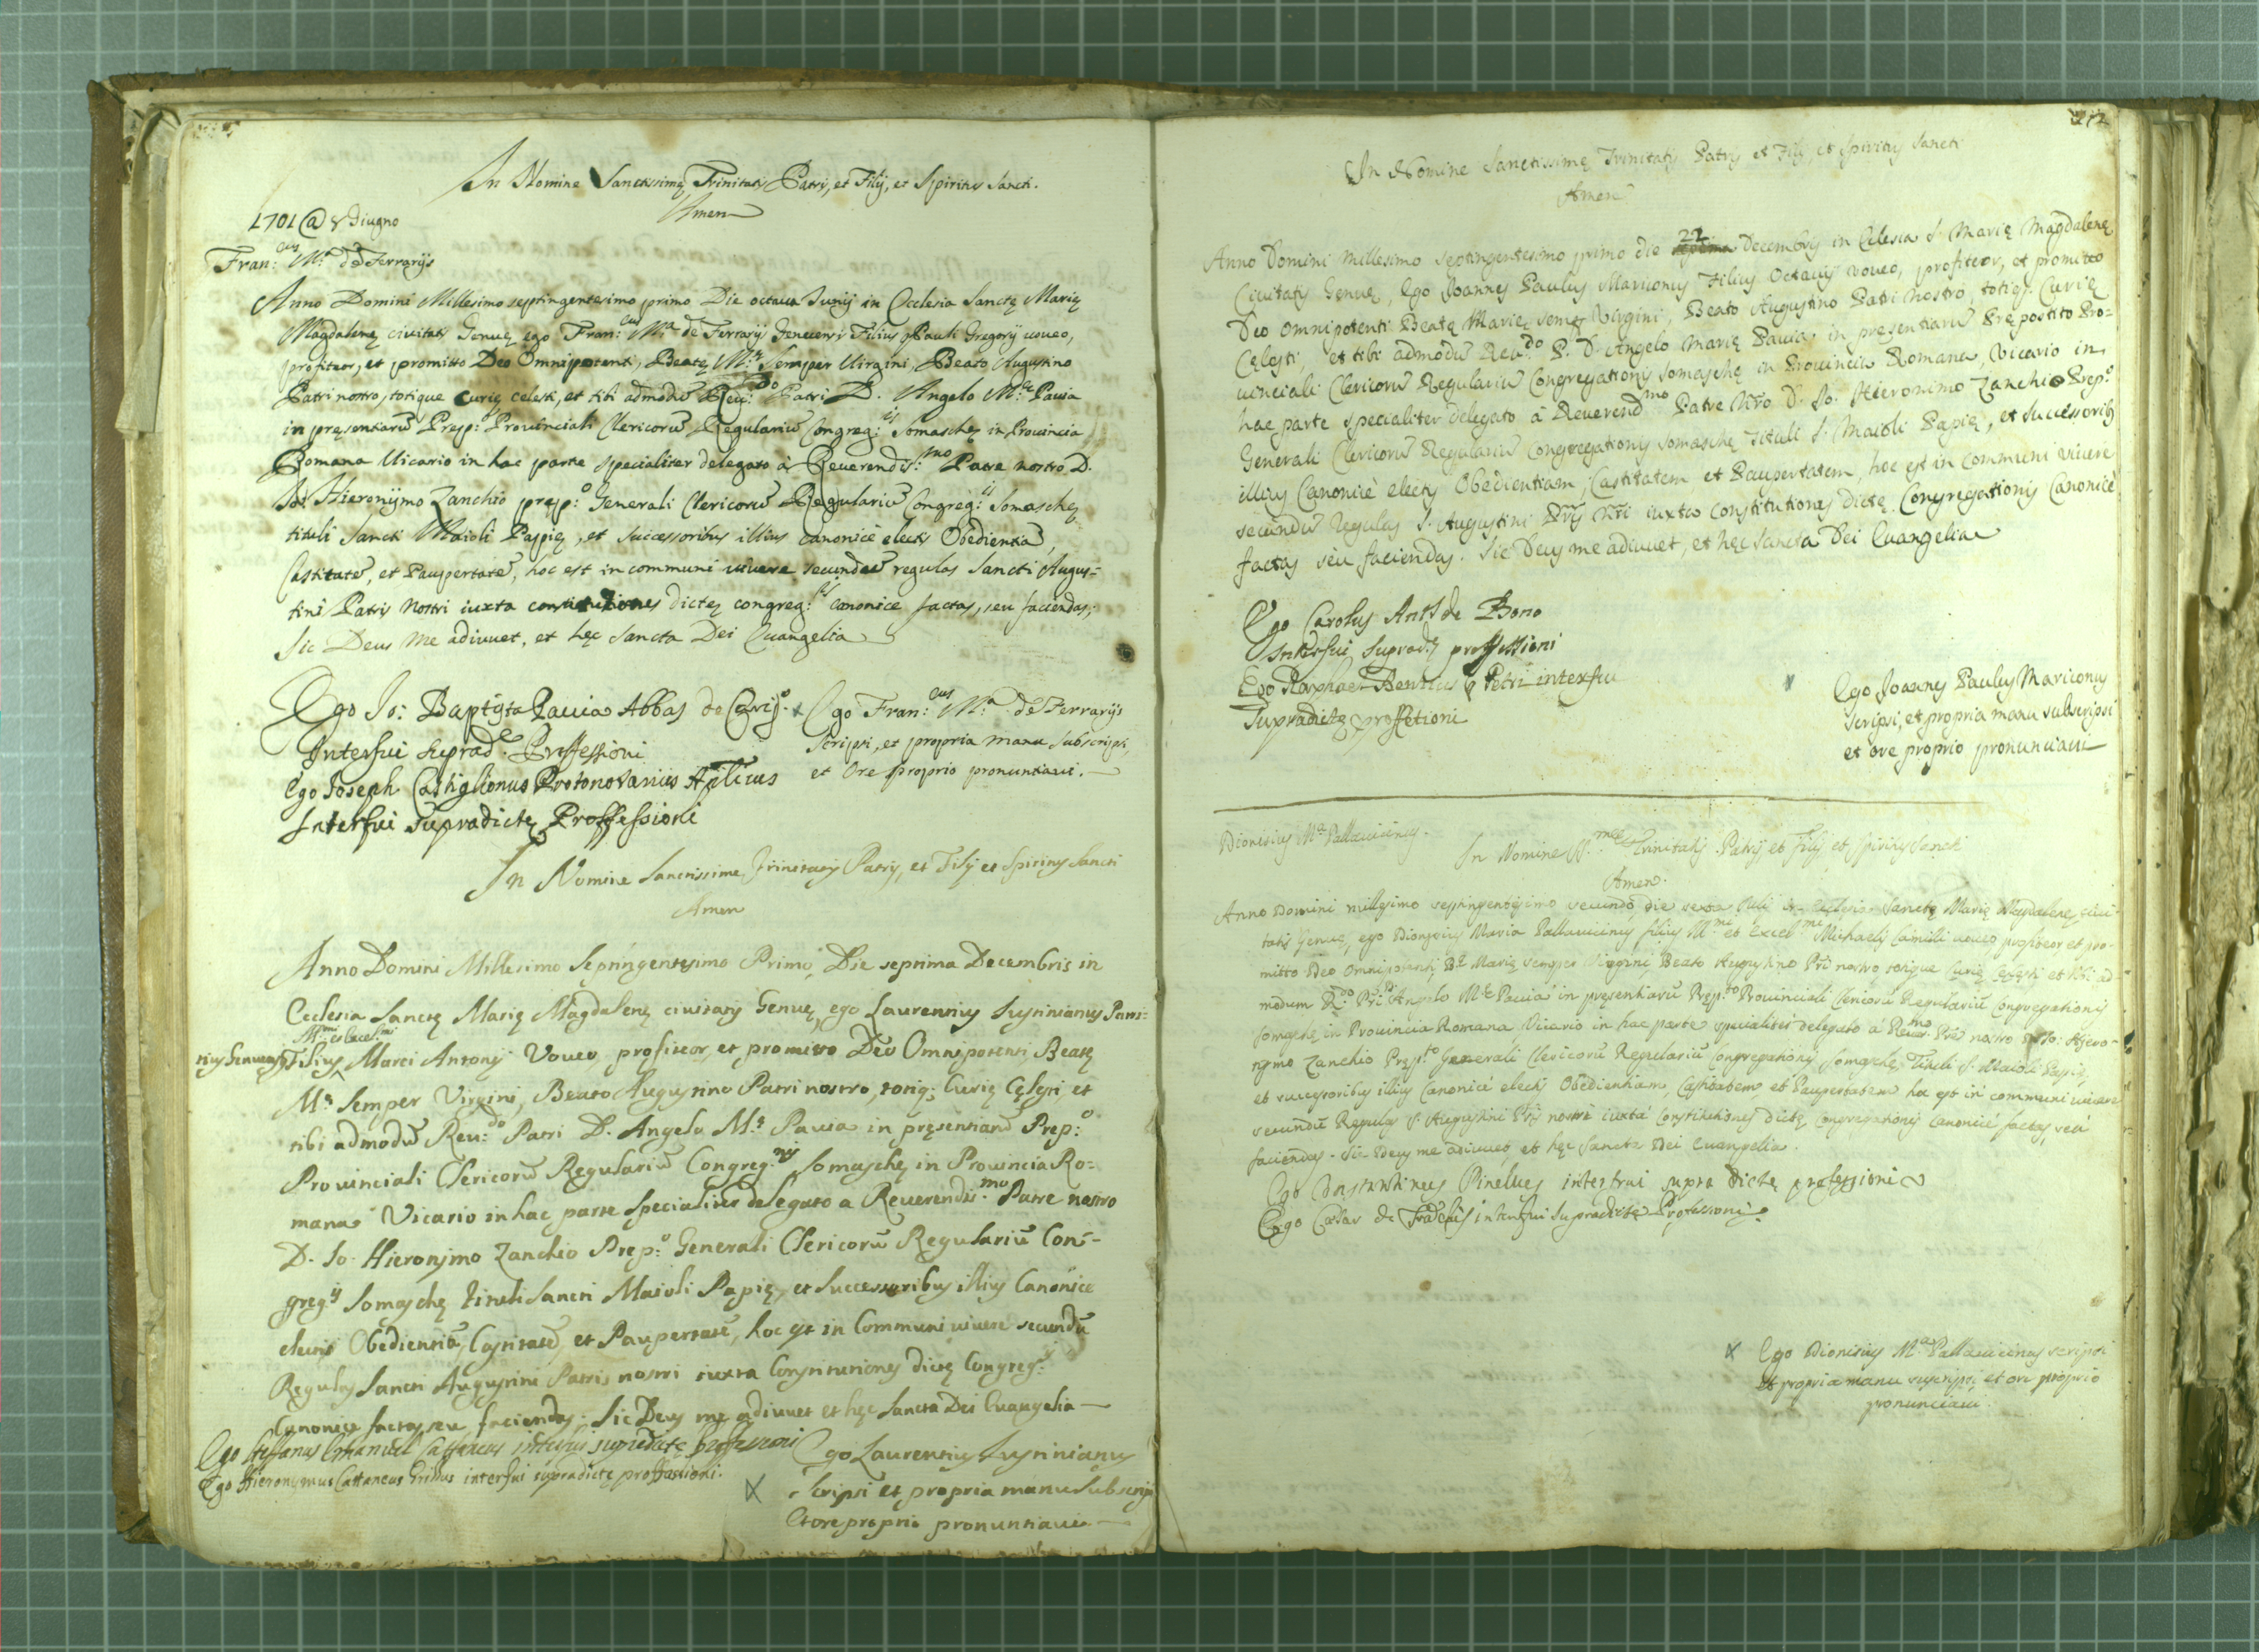 In Nomine Sanctissimę Trinitatis Patris, et Filij, et Spiritus Sancti.
Amen
1701 @ 8 Giugno
Fran:cus M.a de Ferrarijs
Anno Domini Millesimo septingentesimo primo Die octaua Junij in Ecclesia Sanctę Marię
Magdalenę ciuitatis Genuę ego Fran:cus M.a de Ferrarijs Genuensis Filius Pauli Gregorij uoueo,
profiteor, et promitto Deo Omnipotenti, Beatę M.ę Semper Uirgini, Beato Augustino
Patri nostro, totique curię celesti, et tibi admodũ Reu:do Patri D. Angelo M.a Pauia
in pręsentiarũ Prep: Prouinciali Clericorũ Regulariũ Congreg:is Somaschę in Prouincia
Romana Uicario in hac parte specialiter delegato à Reuerendis:mo Patre nostro D.
Io: Hieronijmo Zanchio prep:o Generali Clericorũ Regulariũ Congreg:is Somaschę
tituli Sancti Maioli Papię, et successoribus illius canonicè electis Obedientiã,
Castitatẽ, et Paupertatẽ, hoc est in communi uiuere secundũ regulas Sancti Augus-
tini Patris Nostri iuxta constitutiones dictę congreg:is canonice factas, seu faciendas;
Sic Deus Me adiuuet, et hęc sancta Dei Euangelia
Ego Io: Baptista Pauia Abbas
Interfui suprad.e Proffessioni
Ego Joseph Castiglionus Protonotarius Aplicus
Interfui supradictę Proffessioni
x Ego Fran:cus M.a de Ferrarijs
Scripsi, et propria manu subscripsi,
et Ore proprio pronuntiaui.
In Nomine Sanctissime Trinitatis Patris, et Filij et Spiritus Sancti
Amen
Anno Domini Millesimo Septingentesimo Primo, Die septima Decembris in
Ecclesia Sanctę Marię Magdalenę ciuitatis Genuę, ego Laurentius Justinianus Patri-
tius Genuensis Filius Ill.mi et Excel.mi Marci Antonij Voueo, profiteor, et promitto Deo Omnipotenti, Beatę
M.ę Semper Virgini, Beato Augustino Patri nostro, totiq; Curię Cęlesti, et
tibi admodũ Reu:do Patri D. Angelo M.a Pauia in pręsentiarũ Prep:o
Prouinciali Clericorũ Regulariũ Congreg.nis Somaschę in Prouincia Ro-
mana Vicario in hac parte specialiter delegato a Reuerendis:mo Patre nostro
D. Io. Hieronymo Zanchio Prep:o Generali Clericorũ Regulariũ Con-
greg.is Somaschę tituli Sancti Maioli Papię, et successoribus illius Canonice
electis Obedientiã, Castitatẽ, et Paupertatẽ, hoc est in Communi uiuere secundũ
Regulas Sancti Augustini Patris nostri iuxta Constitutiones dictę Congreg:is
Canonicę factas, seu faciendas. Sic Deus me adiuuet et hęc Sancta Dei Euangelia
Ego Steffanus Emanuel Cattaneus interfui supradictę proffessioni
Ego Hieronymus Cattaneus Grillus interfui supradictę proffessioni.
x Ego Laurentius Justinianus
Scripsi et propria manu Subscripsi
Et ore proprio pronuntiaui
212
In Nomine Sanctissimę Trinitatis Patris et Filij, et Spiritus Sancti
Amen
Anno Domini millesimo septingentesimo primo die 21 Decembris in Eclesia S. Marię Magdalenę
Ciuitatis Genuę, Ego Joannes Paulus Mariconus Filius Octauij voueo, profiteor, et promitto
Deo omnipotenti Beatę Marię semper Virgini, Beato Augustino Patri nostro, totiq. Curię
Cęlesti, et tibi admodũ Reu.do P. D. Angelo Marię Pauia, in presentiarũ Prępostito Pro-
uinciali Clericorũ Regulariũ Congregationis Somaschę in Prouincia Romana, Vicario in
hac parte specialiter delegato à Reuerend.mo Patre Nrõ D. Io. Hieronimo Zanchio Prep.o
Generali Clericorũ Regulariũ Congregationis Somaschę tituli S. Maioli Papię, et successoribus
illius Canonicè electis Obedientiam, Castitatem et Paupertatem, hoc est in communi viuere
secundũ Regulas S. Augustini Pris nri iuxta constitutiones dictę Congregationis Canonicè
factas seu faciendas. Sic Deus me adiuuet, et hęc sancta Dei Euangelia
Ego Carolus Ant.s de Bono
Interfui suprad.ę proffessioni
Ego Raphael q Petri interfui
Supradictę proffetioni
x Ego Joannes Paulus Mariconus
scripsi, et propria manu subscripsi
et ore proprio pronunciaui
Dionisius M.a Pallauicinus.
In Nomine SS.mę Trinitatis Patris et Filij, et Spiritus Sancti
Amen.
Anno Domini millesimo septingentesimo secundo, die sexta Julij in Ecclesia Sanctę Marię Magdalenę ciui-
tatis Genuę, ego Dionysius Maria Pallauicinus filius Ill.mi et Excel.mi Michaelis Camilli uoueo profiteor et pro-
mitto Deo omnipotenti, B.ę Marię semper Virgini, Beato Augustino Pri nostro, totique Curię Cęlesti et tibi ad-
modum R.do Pri D. Angelo M.ę Pauia in pręsentiarũ Prep.to Prouinciali Clericorũ Regulariũ Congregationis
Somaschę in Prouincia Romana Vicario in hac parte specialiter delegato à Reuer.mo Pre nostro D. Io: Hiero-
nymo Zanchio Prep.to Generali Clericorũ Regulariũ Congregationis Somaschę Tituli S. Maioli Papię,
et successoribus illius Canonicè electis Obedientiam, Castitatem et Paupertatem hoc est in communi uiuere
secundũ Regulas S. Augustini Pris nostri iuxtà Constitutiones dictę Congregationis Canonicè factas, seù
faciendas. Sic Deus me adiuuet, et hęc Sancta Dei Euangelia.
Ego Constantinus Pinellus interfui supra dictę professioni
Ego Cæsar de interfui supradictę Professioni.
x Ego Dionisius M.a Pallauicinus scripsi
et propria manu suscripsi, et ore proprio
pronunciaui.